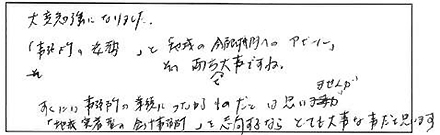 大変勉強になりました.
「事務所の姿勢」と地域の金融機関へのアピール」
それ それ 両方大事ですね。
すぐには事務所の業績につながるものだとは思いませんが
「地域密着型の会計事務所」を志向するなら とても大事な事だと思います